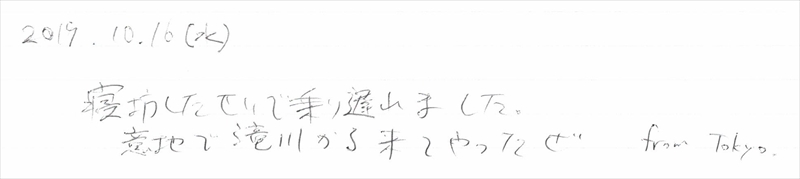 2019.10.16(水)
寝坊したせいで乗り遅れました。
意地で滝川から来てやったぜ from Tokyo.